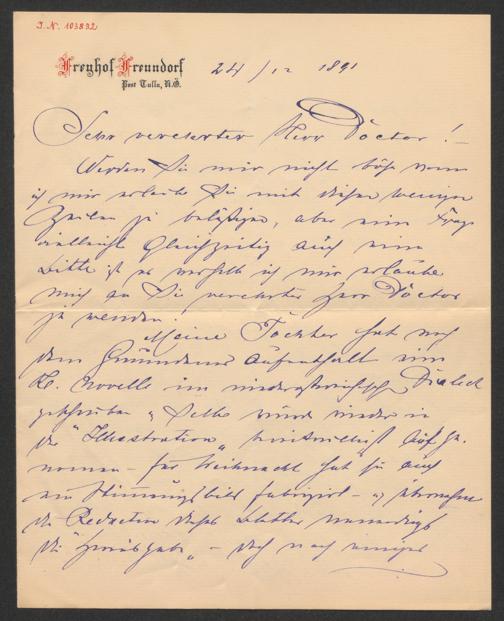 I.N. 103832
Freyhof Freundorf
Post Tulln, N.Ö.
24/12 1891
Sehr verehrter Herr Doctor!
Werden Sie mir nicht böse wenn
ich mir erlaube Sie mit diesen wenigen
Zeilen zu belästigen, aber eine Frage
vielleicht gleichzeitig auch eine
Bitte ist es weshalb ich mir erlaube
mich an Sie verehrter Herr Doctor
zu wenden.
Meine Tochter hat nach
dem Gmundner Aufenthalt eine
kl. Novelle im niederösterreichischen Dialect
geschrieben, Selbe wurde wieder in
die "Illustration"
nomen – für Weihnacht hat sie auch
ein Stimmungsbild fabrizirt –
die Redaction dieses Blattes
die – doch nach einiger